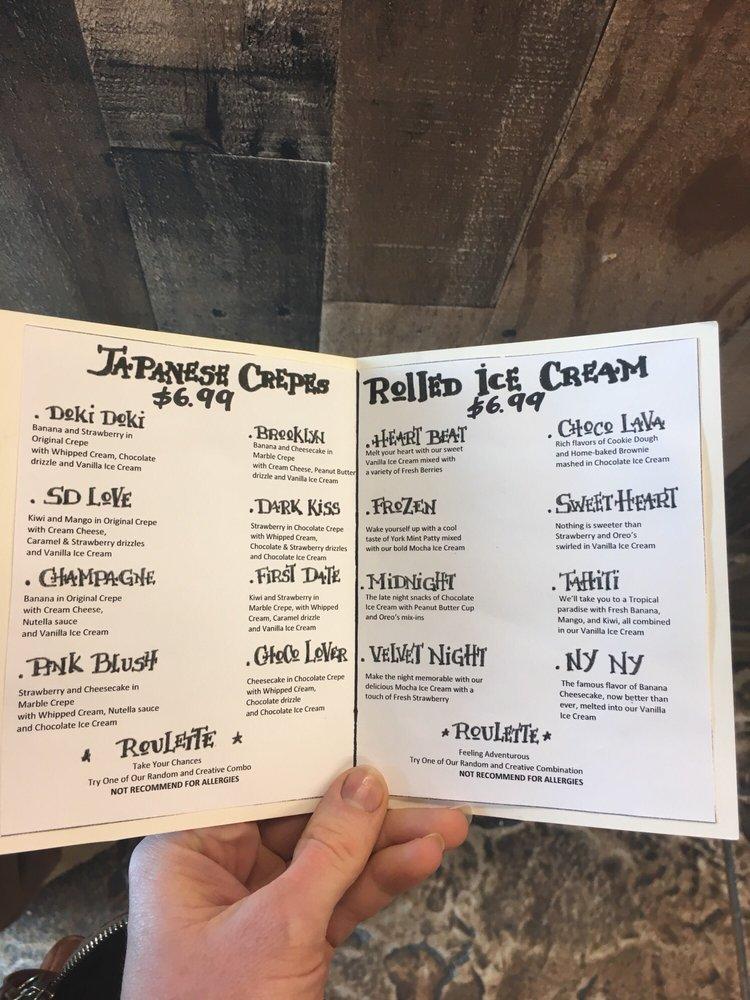 JAPANESE CREPES
$6.99
. Doki Doki
Banana and Strawberry in
Original Crepe
with Whipped Cream, Chocolate
drizzle and Vanilla Ice Cream
. SD LOVE
Kiwi and Mango in Original Crepe
with Cream Cheese,
Caramel & Strawberry drizzles
and Vanilla Ice Cream
. CHAMPAGNE
Banana in Original Crepe
with Cream Cheese,
Nutella sauce
and Vanilla Ice Cream
. PINK BLUSH
Strawberry and Cheesecake in
Marble Crepe
with Whipped Cream, Nutella sauce
and Chocolate Ice Cream
. BROOKLYN
Banana and Cheesecake in
Marble Crepe
with Cream Cheese, Peanut Butter
drizzle and Vanilla Ice Cream
. DARK KISS
Strawberry in Chocolate Crepe
with Whipped Cream,
Chocolate & Strawberry drizzles
and Chocolate Ice Cream
. FIRST DATE
Kiwi and Strawberry in
Marble Crepe, with Whipped
Cream, Caramel drizzle
and Vanilla Ice Cream
. CHOCO LOVER
Cheesecake in Chocolate Crepe
with Whipped Cream,
Chocolate drizzle
and Chocolate Ice Cream
★ ROULETTE ★
Take Your Chances
Try One of Our Random and Creative Combo
NOT RECOMMEND FOR ALLERGIES
ROLLED ICE CREAM
$6.99
. HEART BEAT
Melt your heart with our sweet
Vanilla Ice Cream mixed with
a variety of Fresh Berries
. FROZEN
Wake yourself up with a cool
taste of York Mint Patty mixed
with our bold Mocha Ice Cream
. MIDNIGHT
The late night snacks of Chocolate
Ice Cream with Peanut Butter Cup
and Oreo's mix-ins
. VELVET NIGHT
Make the night memorable with our
delicious Mocha Ice Cream with a
touch of Fresh Strawberry
. CHOCO LAVA
Rich flavors of Cookie Dough
and Home-baked Brownie
mashed in Chocolate Ice Cream
. SWEETHEART
Nothing is sweeter than
Strawberry and Oreo's
swirled in Vanilla Ice Cream
. TAHITI
We'll take you to a Tropical
paradise with Fresh Banana,
Mango, and Kiwi, all combined
in our Vanilla Ice Cream
. NY NY
The famous flavor of Banana
Cheesecake, now better than
ever, melted into our Vanilla
Ice Cream
★ ROULETTE ★
Feeling Adventurous
Try One of Our Random and Creative Combination
NOT RECOMMEND FOR ALLERGIES